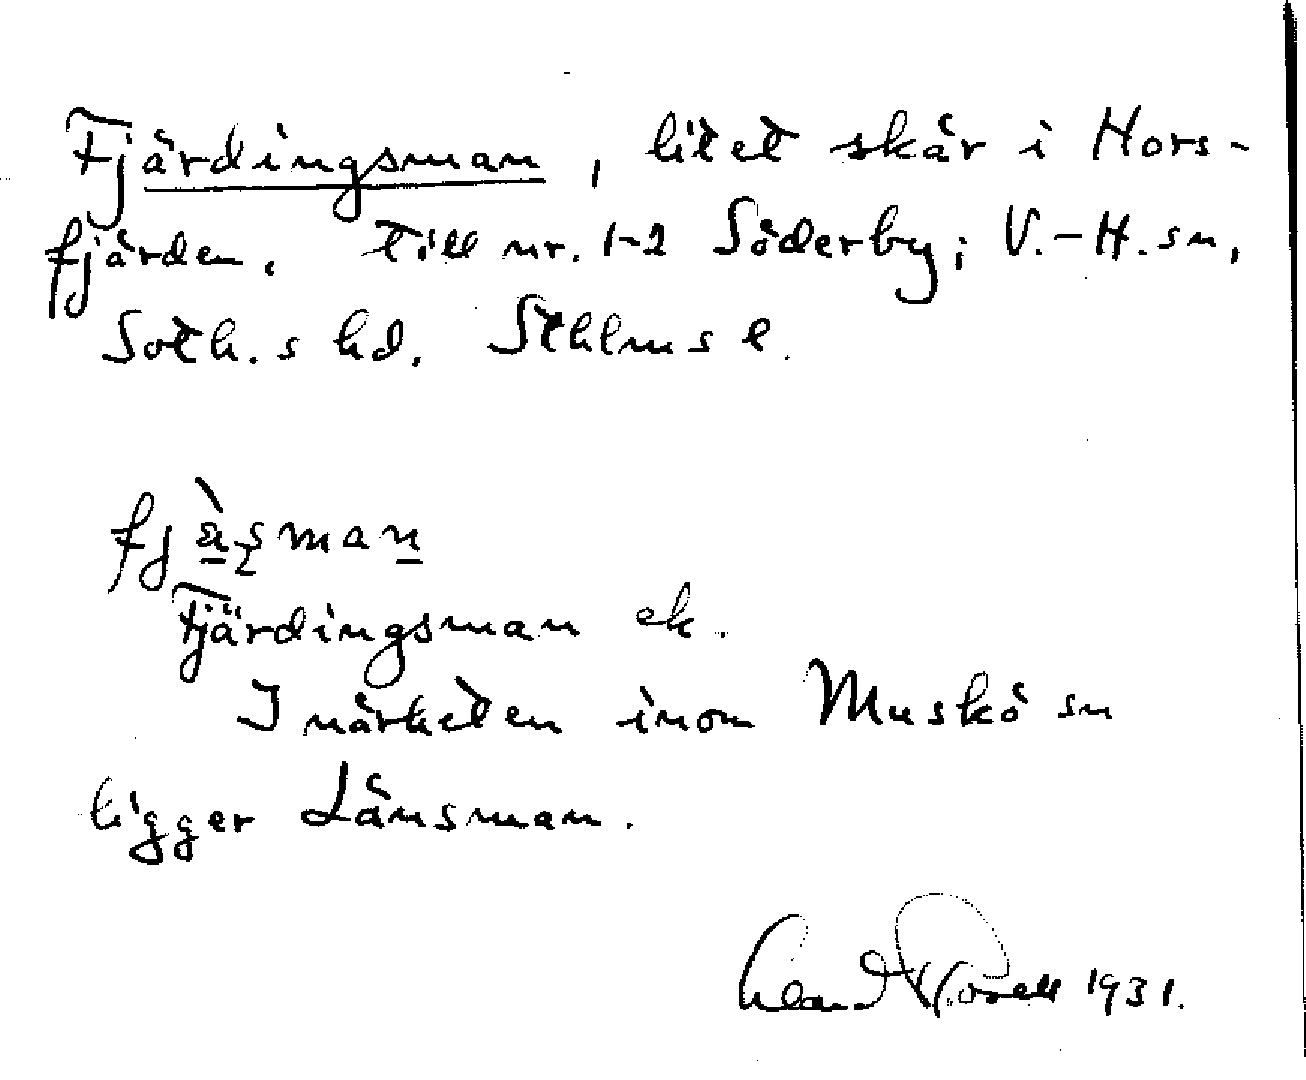 Fjärdingsman, litet skär i Hors-
fjärden. Till nr. 1-2 Söderby; V.-H. sn,
Soth.s hd. Sthlms l.
Fjärdingsman ek.
I närheten inom Muskö sn
ligger Länsman.
1931.